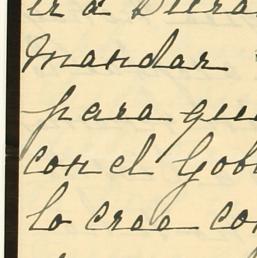 ir a
mandar
para que
con el Gob
lo creo co